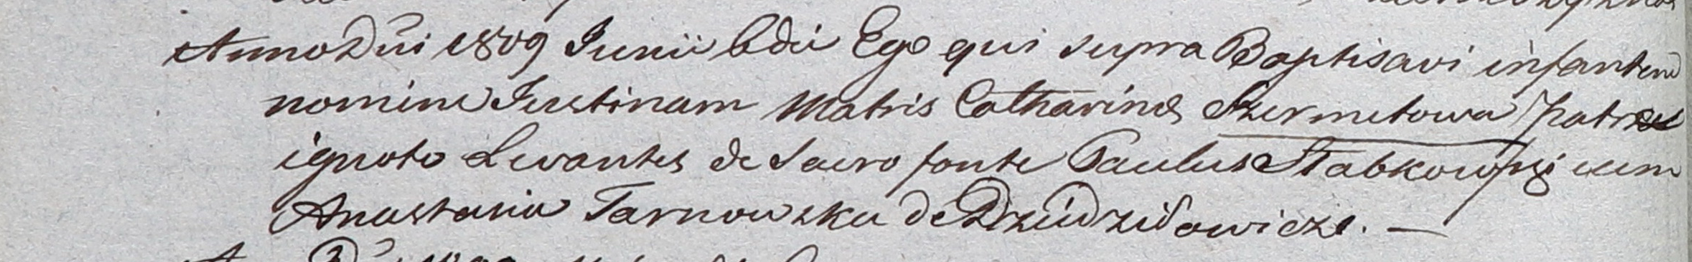 Anno Dni 1809 Junii 6 dii Ego qui supra Baptisavi infantem
nomine Justinam Matris Catharinæ Szermetowa Patre
ignoto Levantes de Sacro fonte Paulus Stabkowski cum
Anastasia Tarnowska de Dziudzidowicze. —